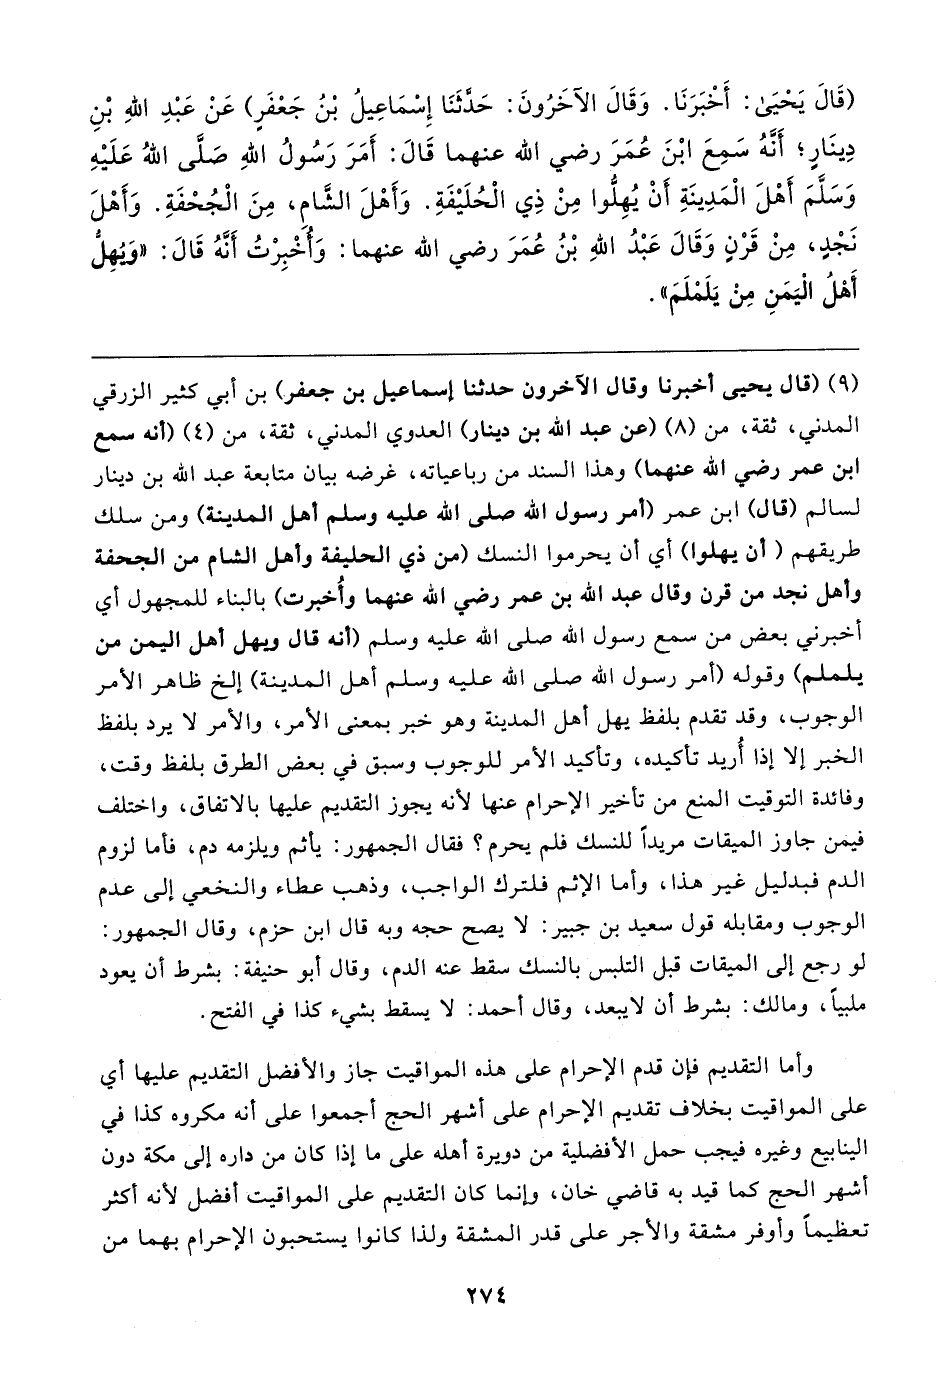 (قَالَ يَحْيَىٰ: أَخْبَرَنَا. وَقَالَ الآخَرُونَ: حَدَّثَنَا إِسْمَاعِيلُ بْنُ جَعْفَرٍ) عَنْ عَبْدِ اللهِ بْنِ
دِينَارٍ؛ أَنَّهُ سَمِعَ ابْنَ عُمَرَ رضي الله عنهما قَالَ: أَمَرَ رَسُولُ اللهِ صَلَّى اللهُ عَلَيْهِ
وَسَلَّمَ أَهْلَ الْمَدِينَةِ أَنْ يُهِلُّوا مِنْ ذِي الْحُلَيْفَةِ. وَأَهْلَ الشَّامِ، مِنَ الْجُحْفَةِ. وَأَهْلَ
نَجْدٍ، مِنْ قَرْنٍ وَقَالَ عَبْدُ اللهِ بْنُ عُمَرَ رضي الله عنهما: وَأُخْبِرْتُ أَنَّهُ قَالَ: «وَيُهِلُّ
أَهْلُ الْيَمَنِ مِنْ يَلَمْلَمَ».
(٩) (قال يحيى أخبرنا وقال الآخرون حدثنا إسماعيل بن جعفر) بن أبي كثير الزرقي
المدني، ثقة، من (٨) (عن عبد الله بن دينار) العدوي المدني، ثقة، من (٤) (أنه سمع
ابن عمر رضي الله عنهما) وهذا السند من رباعياته، غرضه بيان متابعة عبد الله بن دينار
لسالم (قال) ابن عمر (أمر رسول الله صلى الله عليه وسلم أهل المدينة) ومن سلك
طريقهم ( أن يهلوا) أي أن يحرموا النسك (من ذي الحليفة وأهل الشام من الجحفة
وأهل نجد من قرن وقال عبد الله بن عمر رضي الله عنهما وأُخبرت) بالبناء للمجهول أي
أخبرني بعض من سمع رسول الله صلى الله عليه وسلم (أنه قال ويهل أهل اليمن من
يلملم) وقوله (أمر رسول الله صلى الله عليه وسلم أهل المدينة) إلخ ظاهر الأمر
الوجوب، وقد تقدم بلفظ يهل أهل المدينة وهو خبر بمعنى الأمر، والأمر لا يرد بلفظ
الخبر إلا إذا أُريد تأكيده، وتأكيد الأمر للوجوب وسبق في بعض الطرق بلفظ وقت،
وفائدة التوقيت المنع من تأخير الإحرام عنها لأنه يجوز التقديم عليها بالاتفاق، واختلف
فيمن جاوز الميقات مريداً للنسك فلم يحرم؟ فقال الجمهور: يأثم ويلزمه دم، فأما لزوم
الدم فبدليل غير هذا، وأما الإثم فلترك الواجب، وذهب عطاء والنخعي إلى عدم
الوجوب ومقابله قول سعيد بن جبير: لا يصح حجه وبه قال ابن حزم، وقال الجمهور:
لو رجع إلى الميقات قبل التلبس بالنسك سقط عنه الدم، وقال أبو حنيفة: بشرط أن يعود
ملبياً، ومالك: بشرط أن لايبعد، وقال أحمد: لا يسقط بشيء كذا في الفتح.
وأما التقديم فإن قدم الإحرام على هذه المواقيت جاز والأفضل التقديم عليها أي
على المواقيت بخلاف تقديم الإحرام على أشهر الحج أجمعوا على أنه مكروه كذا في
الينابيع وغيره فيجب حمل الأفضلية من دويرة أهله على ما إذا كان من داره إلى مكة دون
أشهر الحج كما قيد به قاضي خان، وإنما كان التقديم على المواقيت أفضل لأنه أكثر
تعظيماً وأوفر مشقة والأجر على قدر المشقة ولذا كانوا يستحبون الإحرام بهما من
٢٧٤